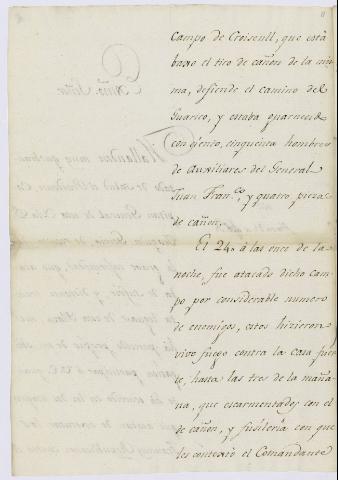 Campo de Croiseull, que está
baxo el tiro de cañon de la mis-
ma, defiende el camino del
Guarico, y estaba guarnecido
con ciento, cinquenta hombres
de Auxiliares del General
Juan Fran.co, y quatro piezas
de cañon.
El 24,, á las once de la
noche, fue atacado dicho cam-
po por considerable numero
de enemigos, estos hizieron
vivo fuego contra la casa fuer-
te, hasta las tres de la maña-
na, que escarmentados con el
de cañon, y fusileria con que
les contextó el Comandante